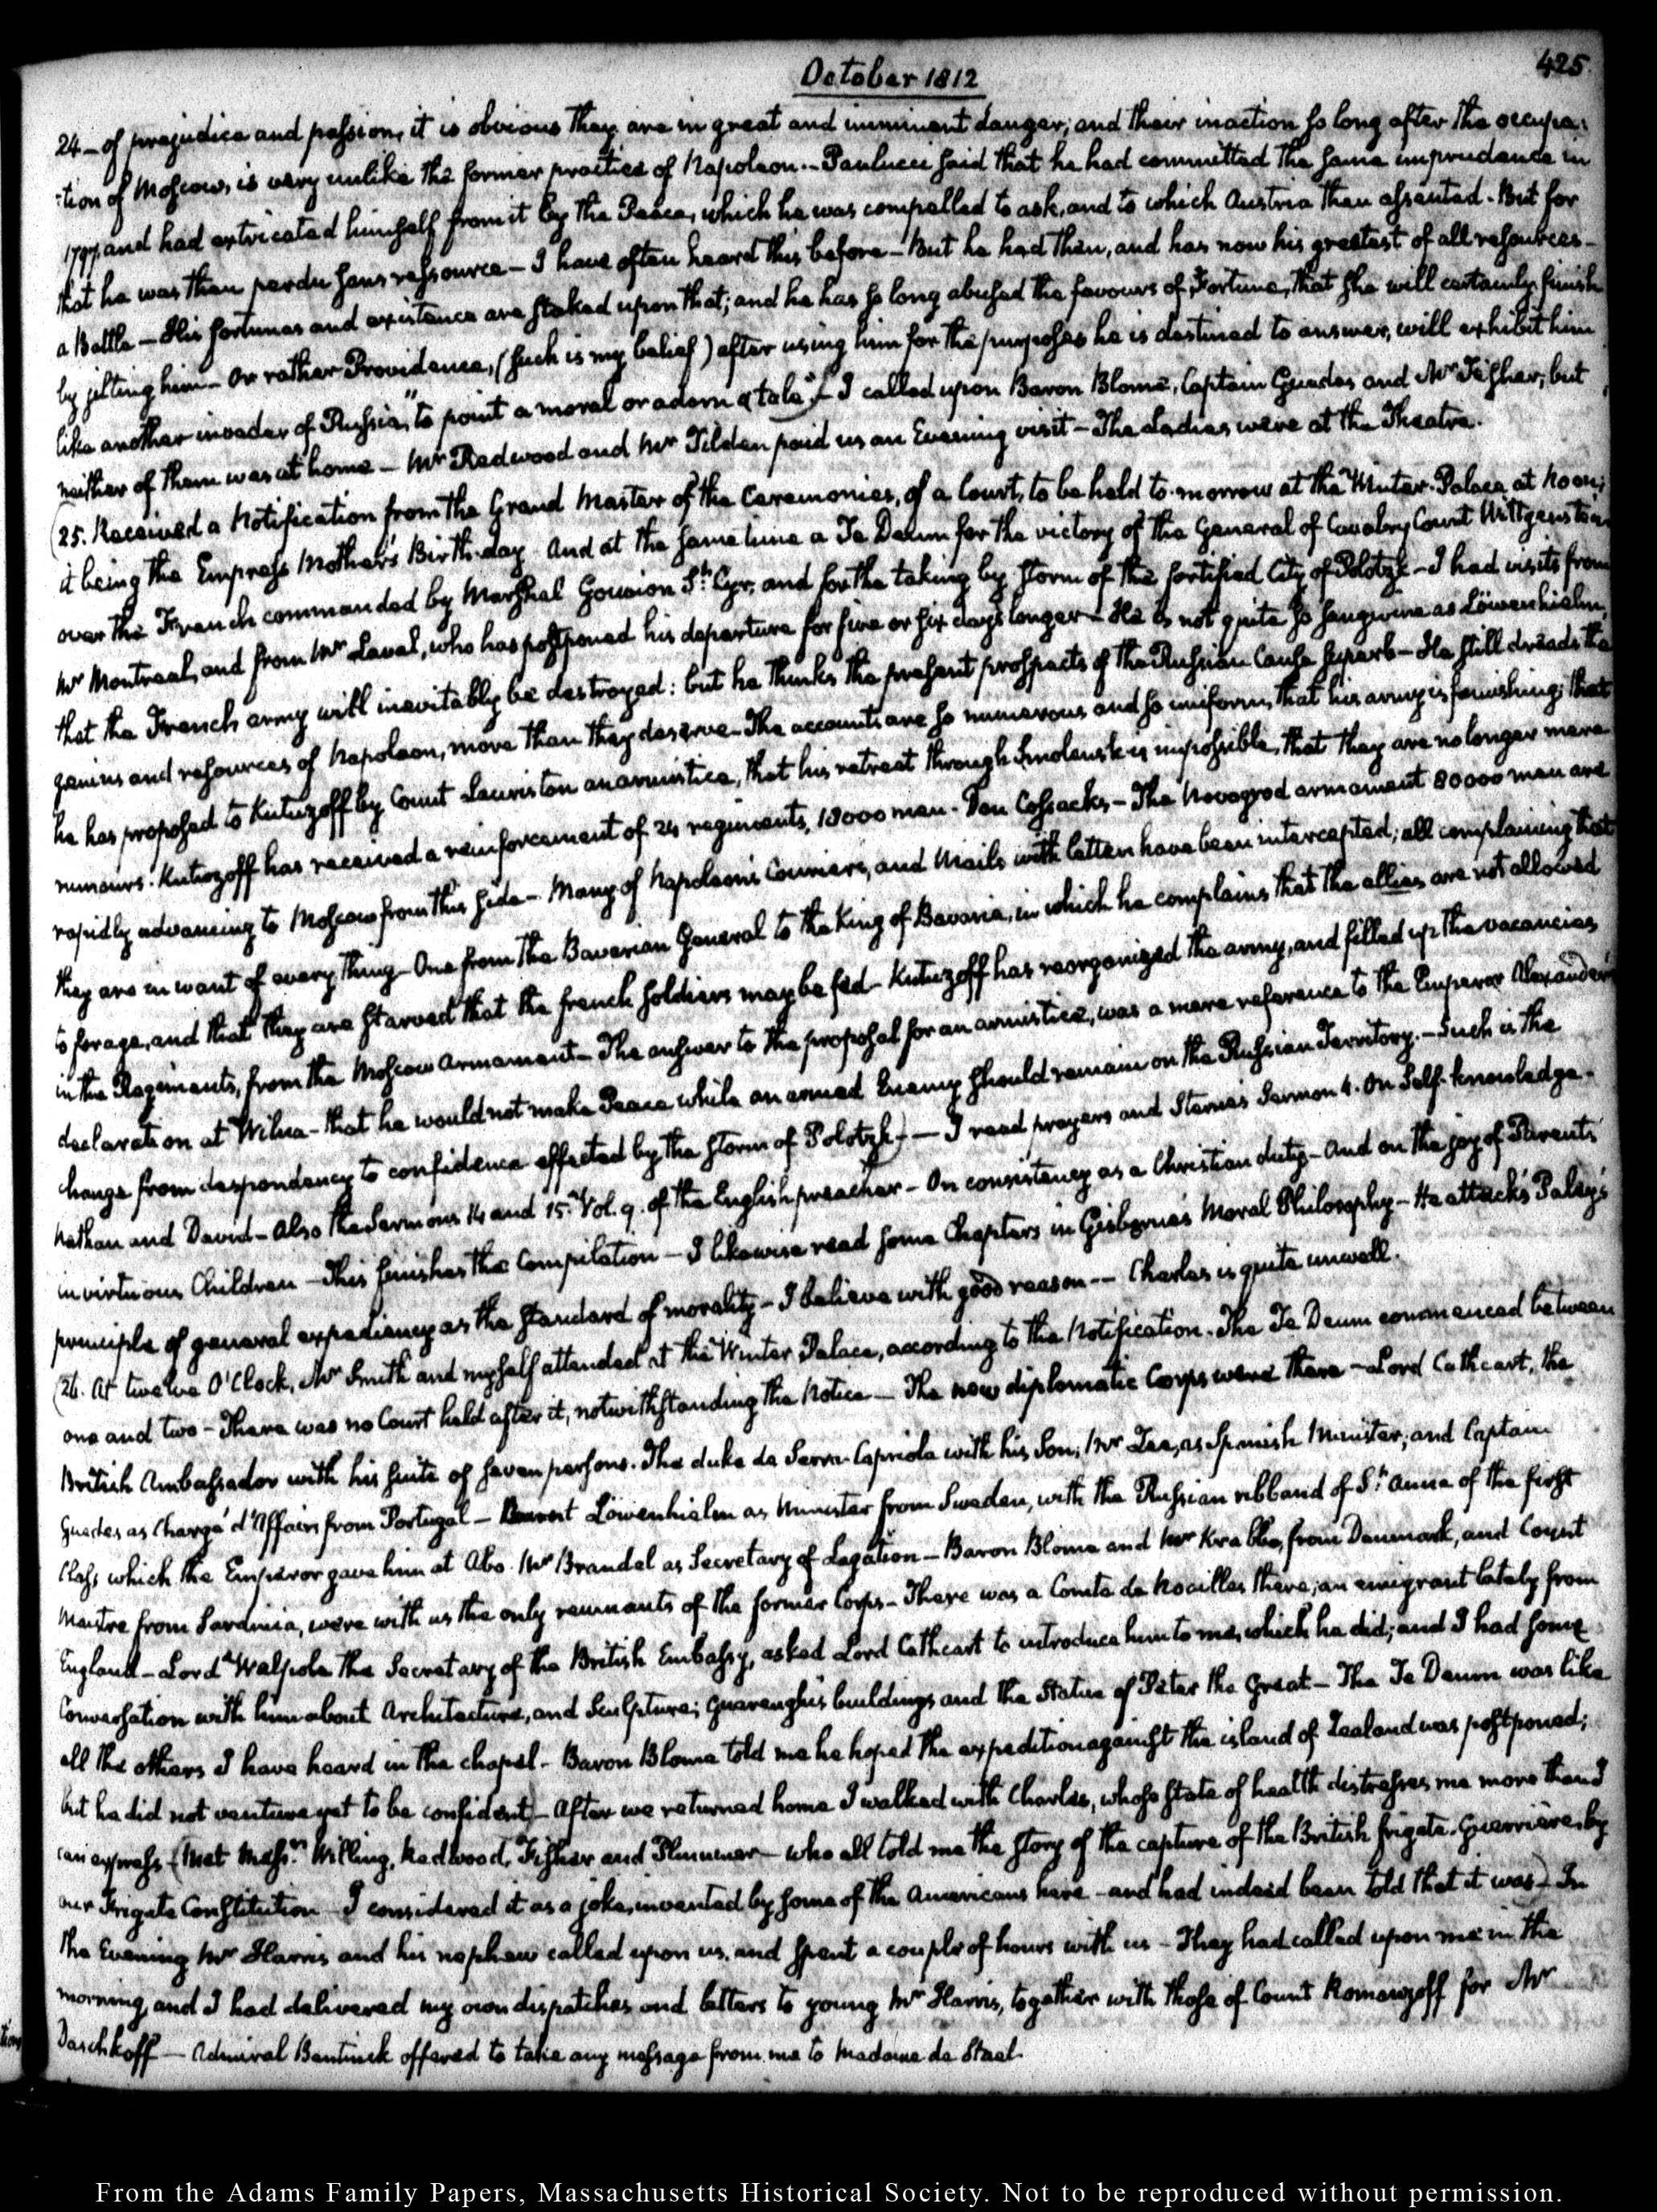 October 1812
425.
24 – of prejudice and passion, it is obvious they are in great and imminent danger; and their inaction so long after the occupa-
-tion of Moscow, is very unlike the former practice of Napoleon.– Paulucci said that he had committed the same imprudence in
1797, and had extricated himself from it by the Peace, which he was compelled to ask, and to which Austria then assented.– But for
that he was then perdu sans ressource – I have often heard this before – But he had then, and has now his greatest of all resources –
a Battle – His fortunes and existence are staked upon that; and he has so long abused the favours of Fortune, that she will certainly finish
by jilting him – Or rather Providence, (such is my belief) after using him for the purposes he is destined to answer, will exhibit him
like another invader of Russia, "to point a moral or adorn a tale" – I called upon Baron Blome, Captain Guedes and Mr Fisher; but
neither of them was at home – Mr Redwood and Mr Tilden paid us an Evening visit – The Ladies were at the Theatre.
25. Received a Notification from the Grand Master of the Ceremonies, of a Court, to be held to-morrow at the Winter-Palace at Noon;
it being the Empress Mother's Birth-day – And at the same time a Te Deum for the victory of the General of Cavalry, Count Wittgenstein
over the French commanded by Marshal Gouvion St. Cyr, and for the taking by storm of the fortified City of Polotzk – I had visits from
Mr Montreal, and from Mr Laval, who has postponed his departure for five or six days longer – He is not quite so sanguine as Löwenhielm,
that the French army will inevitably be destroyed: but he thinks the present prospects of the Russian Cause superb – He still dreads the
genius and resources of Napoleon, more than they deserve – The accounts are so numerous and so uniform, that his army is famishing; that
he has proposed to Kutuzoff by Count Lauriston an armistice, that his retreat through Smolensk is impossible, that they are no longer mere
rumours. Kutuzoff has received a reinforcement of 24 regiments, 18000 men – Don Cossacks – The Novogrod armament 80000 men are
rapidly advancing to Moscow from this side – Many of Napoleon's Couriers, and Mails with letters have been intercepted; all complaining that
they are in want of every thing – One from the Bavarian General to the King of Bavaria, in which he complains that the allies are not allowed
to forage, and that they are starved that the french soldiers may be fed – Kutuzoff has reorganized the army, and filled up the vacancies
in the Regiments, from the Moscow Armament – The answer to the proposal for an armistice, was a mere reference to the Emperor Alexander's
declaration at Wilna – that he would not make Peace while an armed Enemy should remain on the Russian Territory. – Such is the
change from despondency to confidence effected by the storm of Polotzk) – I read prayers and Sterne's Sermon 4. On Self-knowledge –
Nathan and David – Also the Sermons 14 and 15. Vol. 9. of the English preacher – On consistency as a Christian duty – And on the joy of Parents
in virtuous Children – This finishes the Compilation – I likewise read some Chapters in Gisborne's Moral Philosophy – He attacks Paley's
principle of general expediency as the standard of morality – I believe with good reason –– Charles is quite unwell.
(26. At twelve O'Clock, Mr Smith and myself attended at the Winter Palace, according to the Notification. The Te Deum commenced between
one and two – There was no Court held after it, notwithstanding the Notice – The new diplomatic Corps were there – Lord Cathcart, the
British Ambassador with his suite of seven persons. The duke de Serra-Capriola with his Son; Mr Zea, as Spanish Minister; and Captain
Guedes as Chargé d'Affairs from Portugal – Count Löwenhielm as Minister from Sweden, with the Russian ribband of St. Anne of the first
Class, which the Emperor gave him at Abo. Mr Brandel as Secretary of Legation – Baron Blome and Mr Krabbe, from Denmark, and Count
Maistre from Sardinia, were with us the only remnants of the former Corps – There was a Comte de Noailles there; an emigrant lately from
England – Lord Walpole the Secretary of the British Embassy, asked Lord Cathcart to introduce him to me, which he did; and I had some
Conversation with him about Architecture, and Sculpture; Guarenghi's buildings and the Statue of Peter the Great – The Te Deum was like
all the others I have heard in the chapel – Baron Blome told me he hoped the expedition against the island of Zealand was postponed;
but he did not venture yet to be confident) – After we returned home I walked with Charles, whose state of health distresses me more than I
can express – (Met Messrs. Willing, Redwood, Fisher and Plummer – who all told me the story of the capture of the British frigate Guerriere, by
our Frigate Constitution – I considered it as a joke, invented by some of the Americans here – and had indeed been told that it was) – In
the Evening Mr Harris and his nephew called upon us, and spent a couple of hours with us – They had called upon me in the
morning, and I had delivered my own dispatches and letters to young Mr Harris, together with those of Count Romanzoff for Mr
Daschkoff – Admiral Bentinck offered to take any message from me to Madame de Stael.
From the Adams Family Papers, Massachusetts Historical Society. Not to be reproduced without permission.